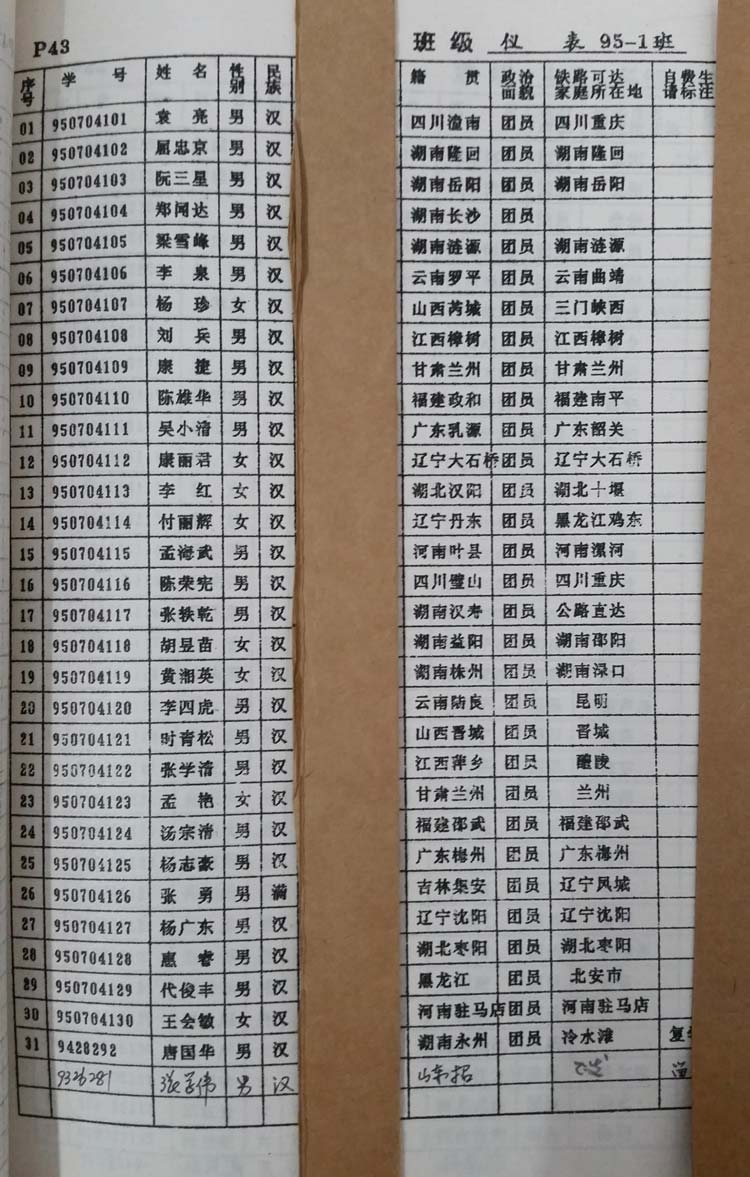 P43 班级 仪 表 95-1班
序号 学号 姓名 性别 民族 籍贯 政治面貌 铁路可达家庭所在地 自费生请标注
01 950704101 袁亮 男 汉 四川潼南 团员 四川重庆
02 950704102 屈忠京 男 汉 湖南隆回 团员 湖南隆回
03 950704103 阮三星 男 汉 湖南岳阳 团员 湖南岳阳
04 950704104 郑闻达 男 汉 湖南长沙 团员
05 950704105 梁雪峰 男 汉 湖南涟源 团员 湖南涟源
06 950704106 李泉 男 汉 云南罗平 团员 云南曲靖
07 950704107 杨珍 女 汉 山西芮城 团员 三门峡西
08 950704108 刘兵 男 汉 江西樟树 团员 江西樟树
09 950704109 康捷 男 汉 甘肃兰州 团员 甘肃兰州
10 950704110 陈雄华 男 汉 福建政和 团员 福建南平
11 950704111 吴小清 男 汉 广东乳源 团员 广东韶关
12 950704112 康丽君 女 汉 辽宁大石桥 团员 辽宁大石桥
13 950704113 李红 女 汉 湖北汉阳 团员 湖北十堰
14 950704114 付丽辉 女 汉 辽宁丹东 团员 黑龙江鸡东
15 950704115 孟海武 男 汉 河南叶县 团员 河南漯河
16 950704116 陈荣宪 男 汉 四川璧山 团员 四川重庆
17 950704117 张轶乾 男 汉 湖南汉寿 团员 公路直达
18 950704118 胡昱苗 女 汉 湖南益阳 团员 湖南邵阳
19 950704119 黄湘英 女 汉 湖南株州 团员 湖南渌口
20 950704120 李四虎 男 汉 云南陆良 团员 昆明
21 950704121 时青松 男 汉 山西晋城 团员 晋城
22 950704122 张学清 男 汉 江西萍乡 团员 醴陵
23 950704123 孟艳 女 汉 甘肃兰州 团员 兰州
24 950704124 汤宗清 男 汉 福建邵武 团员 福建邵武
25 950704125 杨志豪 男 汉 广东梅州 团员 广东梅州
26 950704126 张勇 男 满 吉林集安 团员 辽宁凤城
27 950704127 杨广东 男 汉 辽宁沈阳 团员 辽宁沈阳
28 950704128 惠睿 男 汉 湖北枣阳 团员 湖北枣阳
29 950704129 代俊丰 男 汉 黑龙江 团员 北安市
30 950704130 王会敏 女 汉 河南驻马店 团员 河南驻马店
31 9428292 唐国华 男 汉 湖南永州 团员 冷水滩 复
9326281 男 汉 山东招